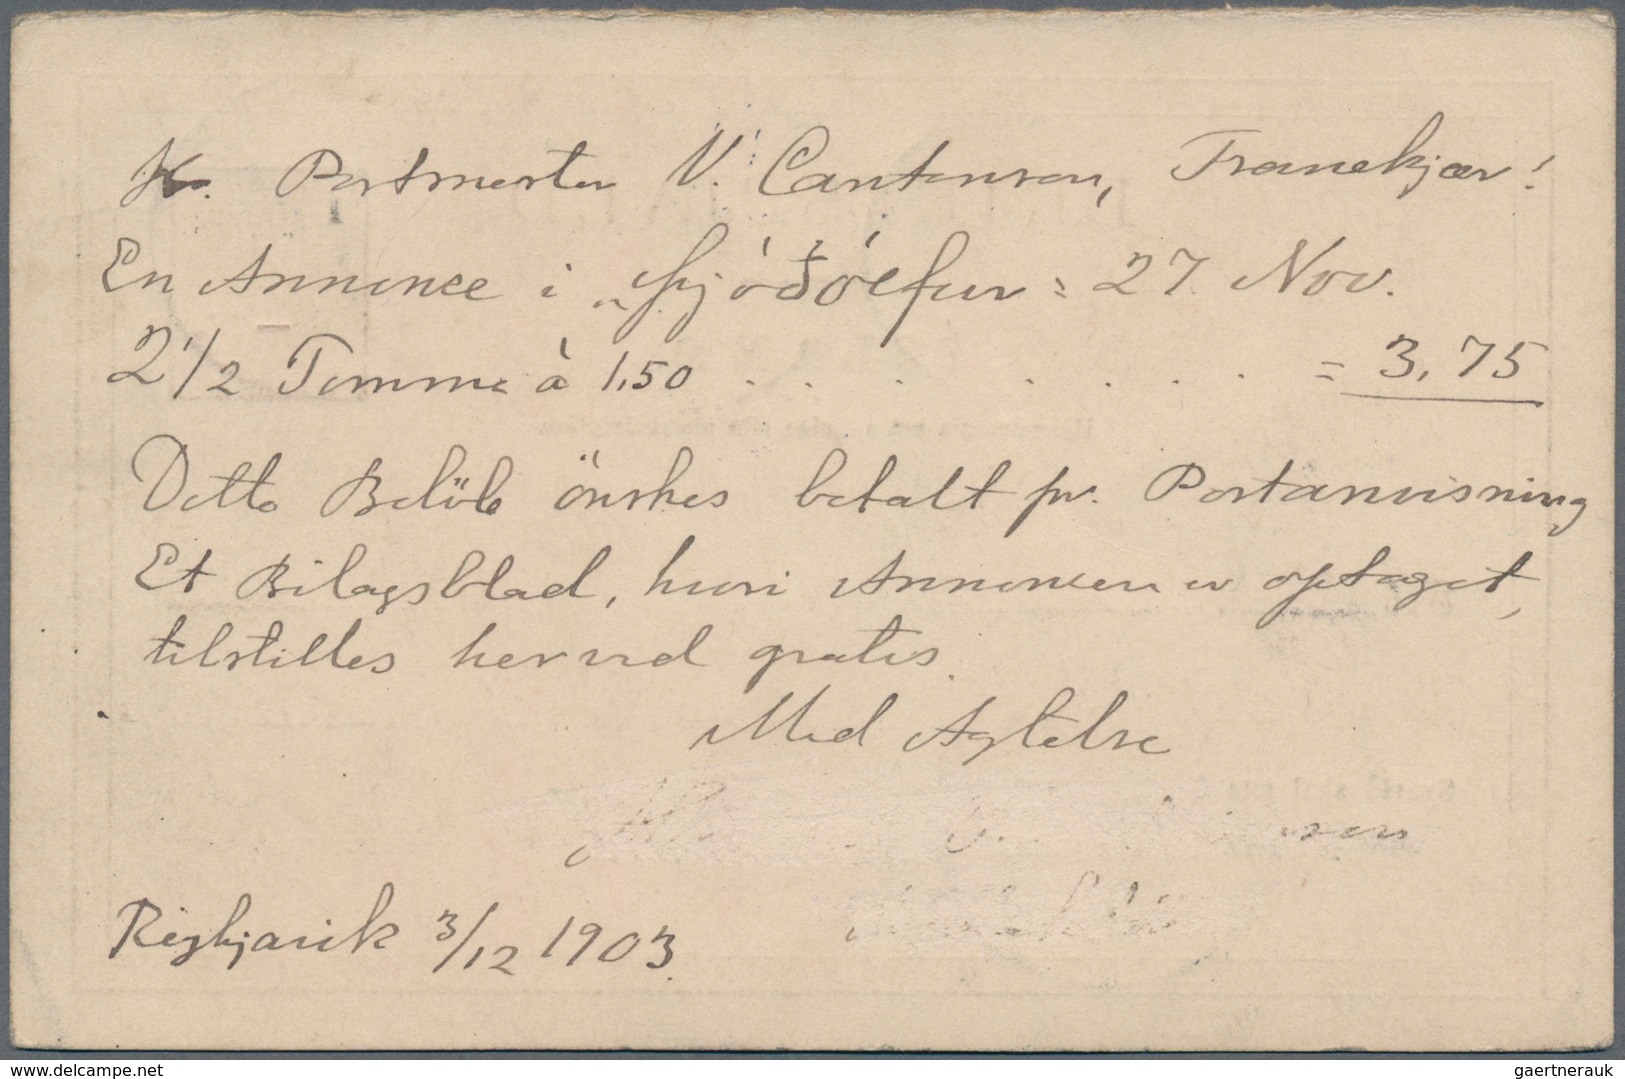 Hr. Postmester V. Carstensen, Tranekjær!
En Annonce i „Þjóðólfur" 27 Nov.
2 1/2 Tomme à 1,50 . . . . . . . . = 3,75
Dette Belöb önskes betalt pr. Postanvisning
Et Bilagsblad, hvori Annoncen er optaget,
tilstilles herved gratis.
Med Agtelse
Reykjavik 3/12 1903
www.delcampe.net
gaertnerauk